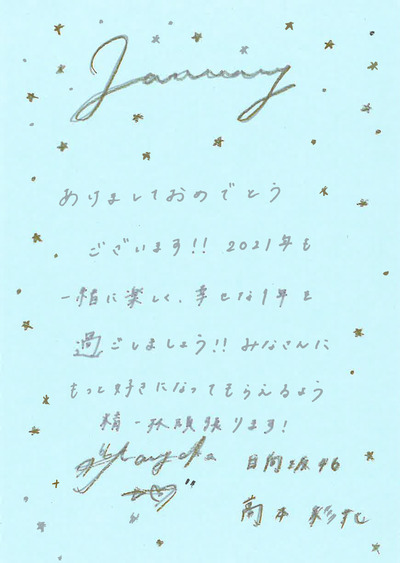 January
あけましておめでとう
ございます!! 2021年も
一緒に楽しく、幸せな1年を
過ごしましょう!! みなさんに
もっと好きになってもらえるよう
精一杯頑張ります!
日向坂46
高本 彩花